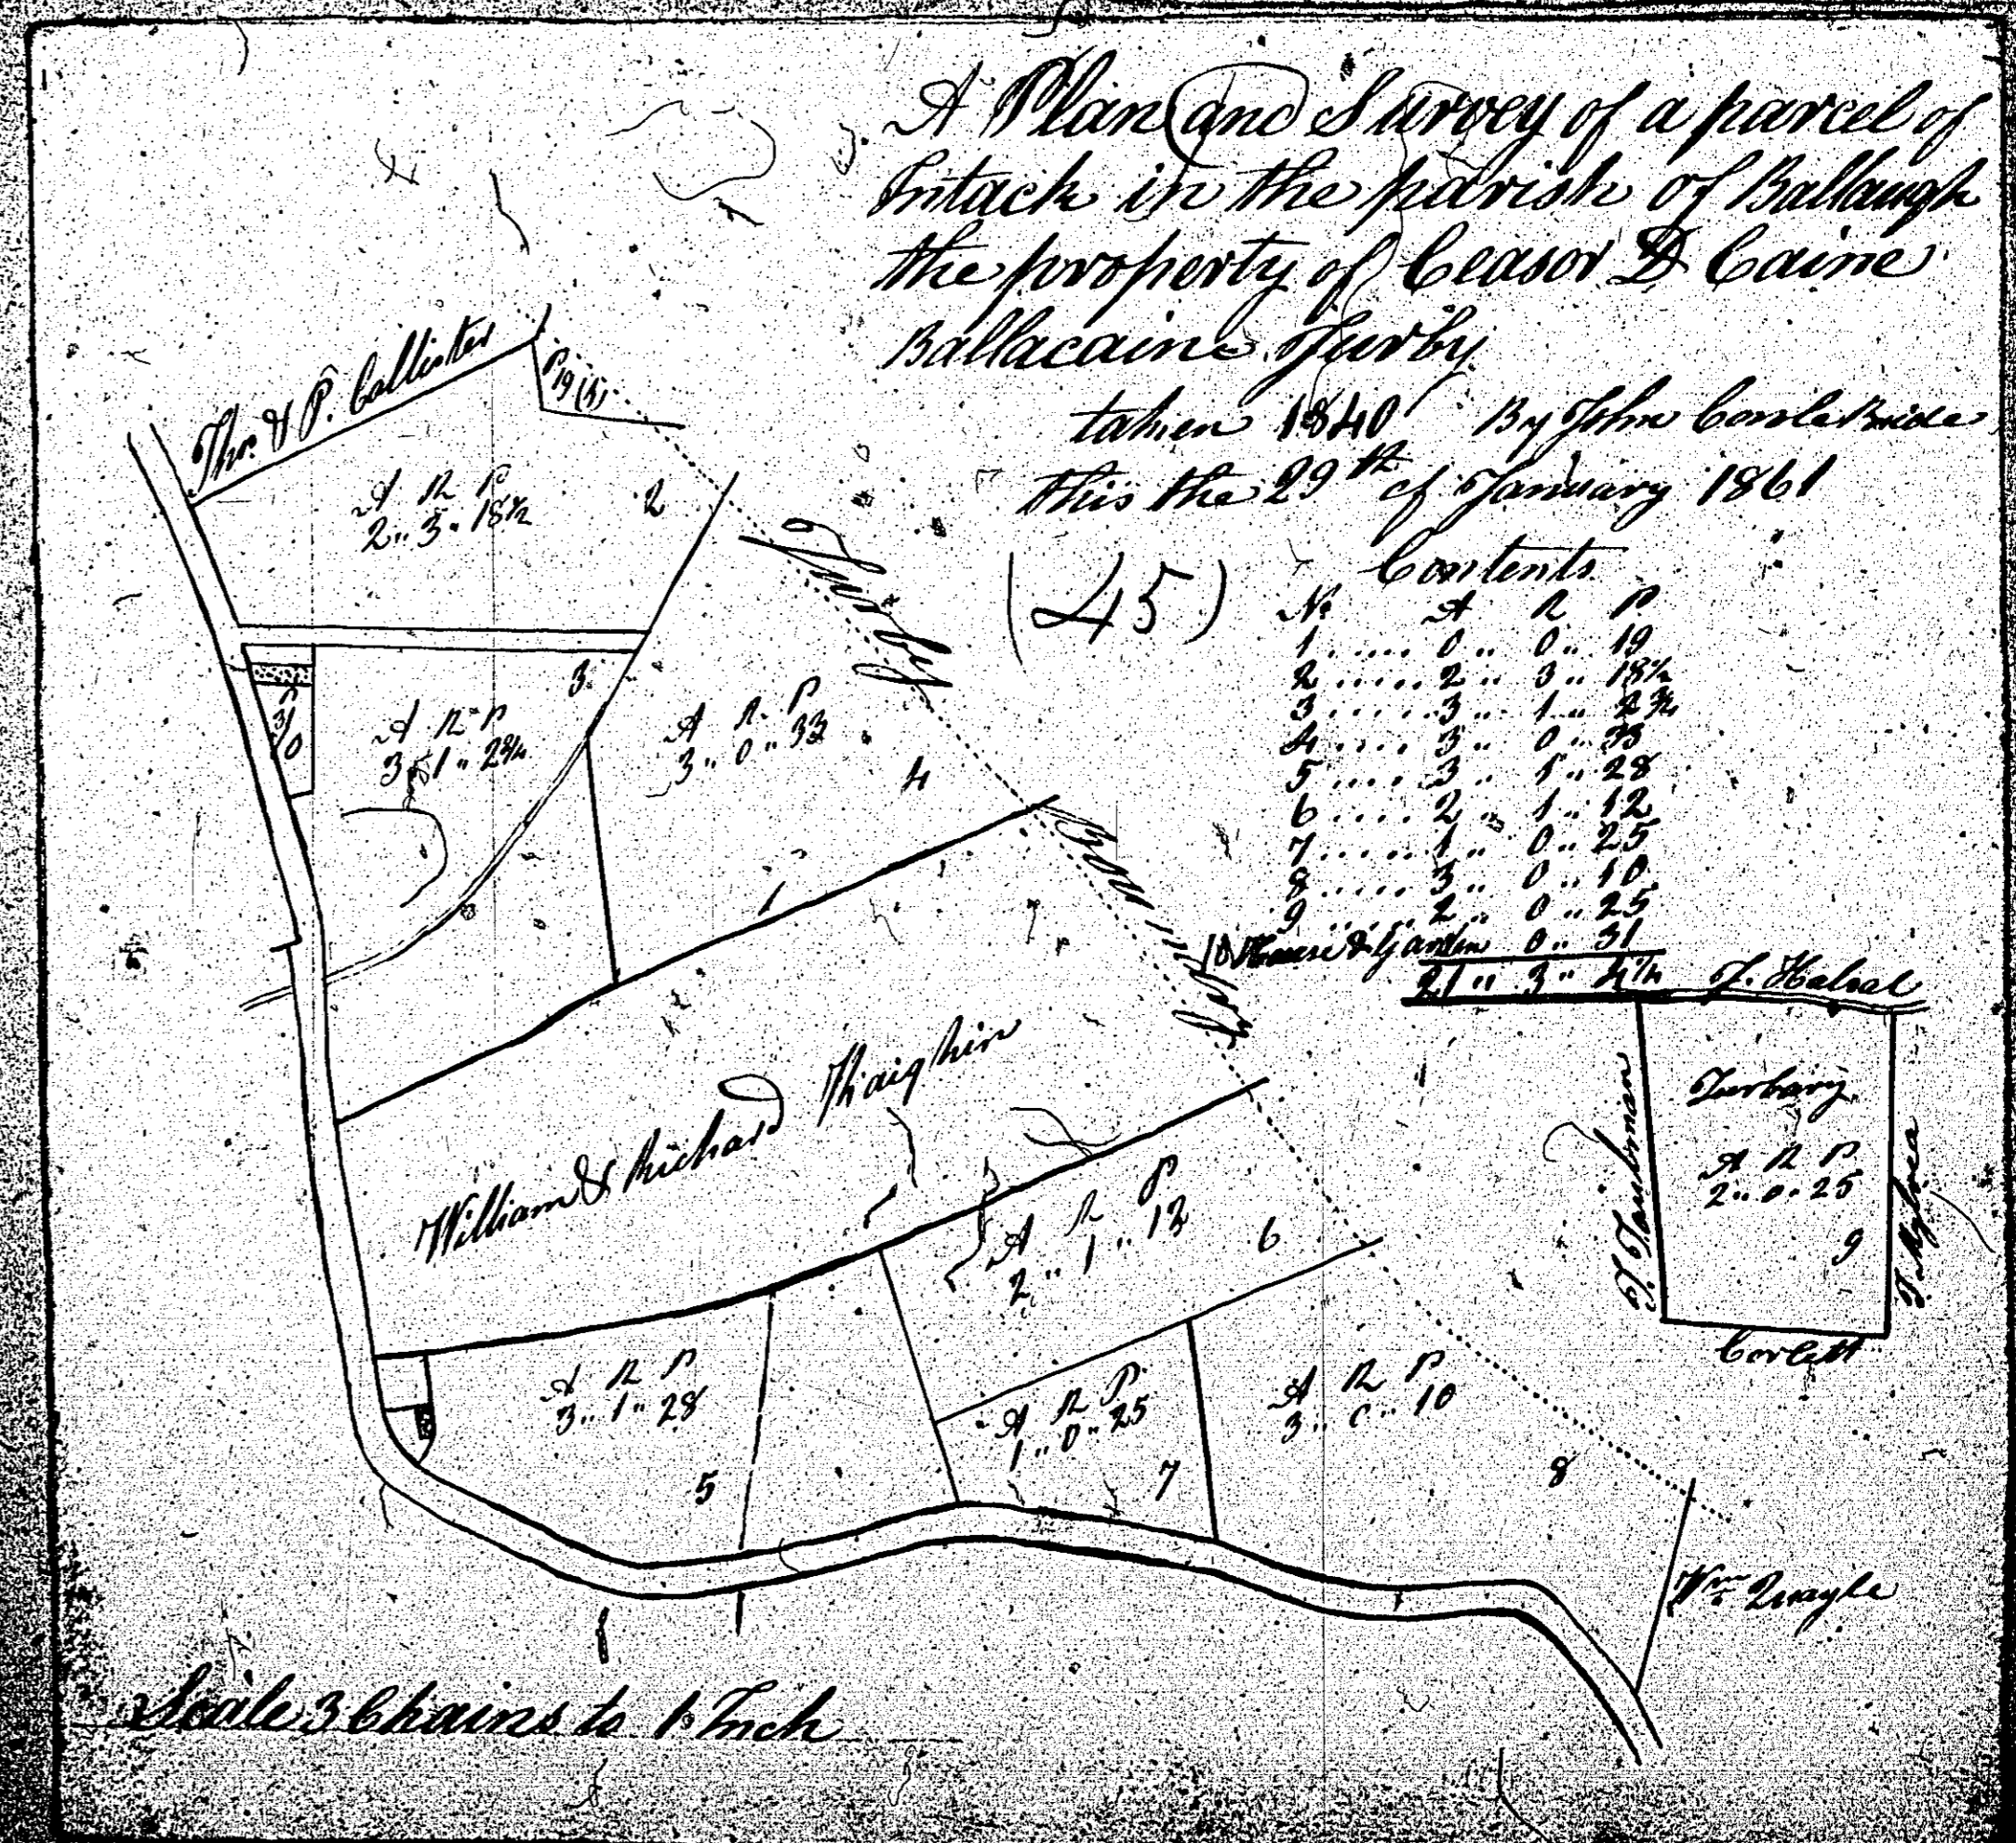 A Plan and Survey of a parcel of
Intack in the parish of Ballaugh
the property of Ceasor D Caine
Ballacaine Jurby
taken 1840 By John Cowle Bride
this the 29th of January 1861
(45)
Contents
No A R P
1 ...... 0 .. 0 .. 19
2 ...... 2 .. 3 .. 18½
3 ...... 3 .. 1 .. 2¾
4 ..... 3 .. 0 .. 33
5 ..... 3 .. 1 .. 28
6 .... 2 .. 1 .. 12
7 ...... 1 .. 0 .. 25
8 ..... 3 .. 0 .. 10
9 ...... 2 .. 0 .. 25
10 House & Garden 0 .. 31
21 .. 3 .. 4¼
Thos. & P. Callister
P 19 (1)
A R P
2 .. 3 .. 18½
2
Jurby
3
P
31
10
A R P
3 .. 1 .. 2¾
A R P
3 .. 0 .. 33
4
Boundary
William & Richard Kaighin
A R P
2 .. 1 .. 12
6
A R P
3 .. 1 .. 28
5
A R P
1 .. 0 .. 25
7
A R P
3 .. 0 .. 10
8
J. Halsal
J. Taubman
Turbary
A R P
2 .. 0 .. 25
9
J. Mylrea
Corlett
Wm Quayle
Scale 3 Chains to 1 Inch